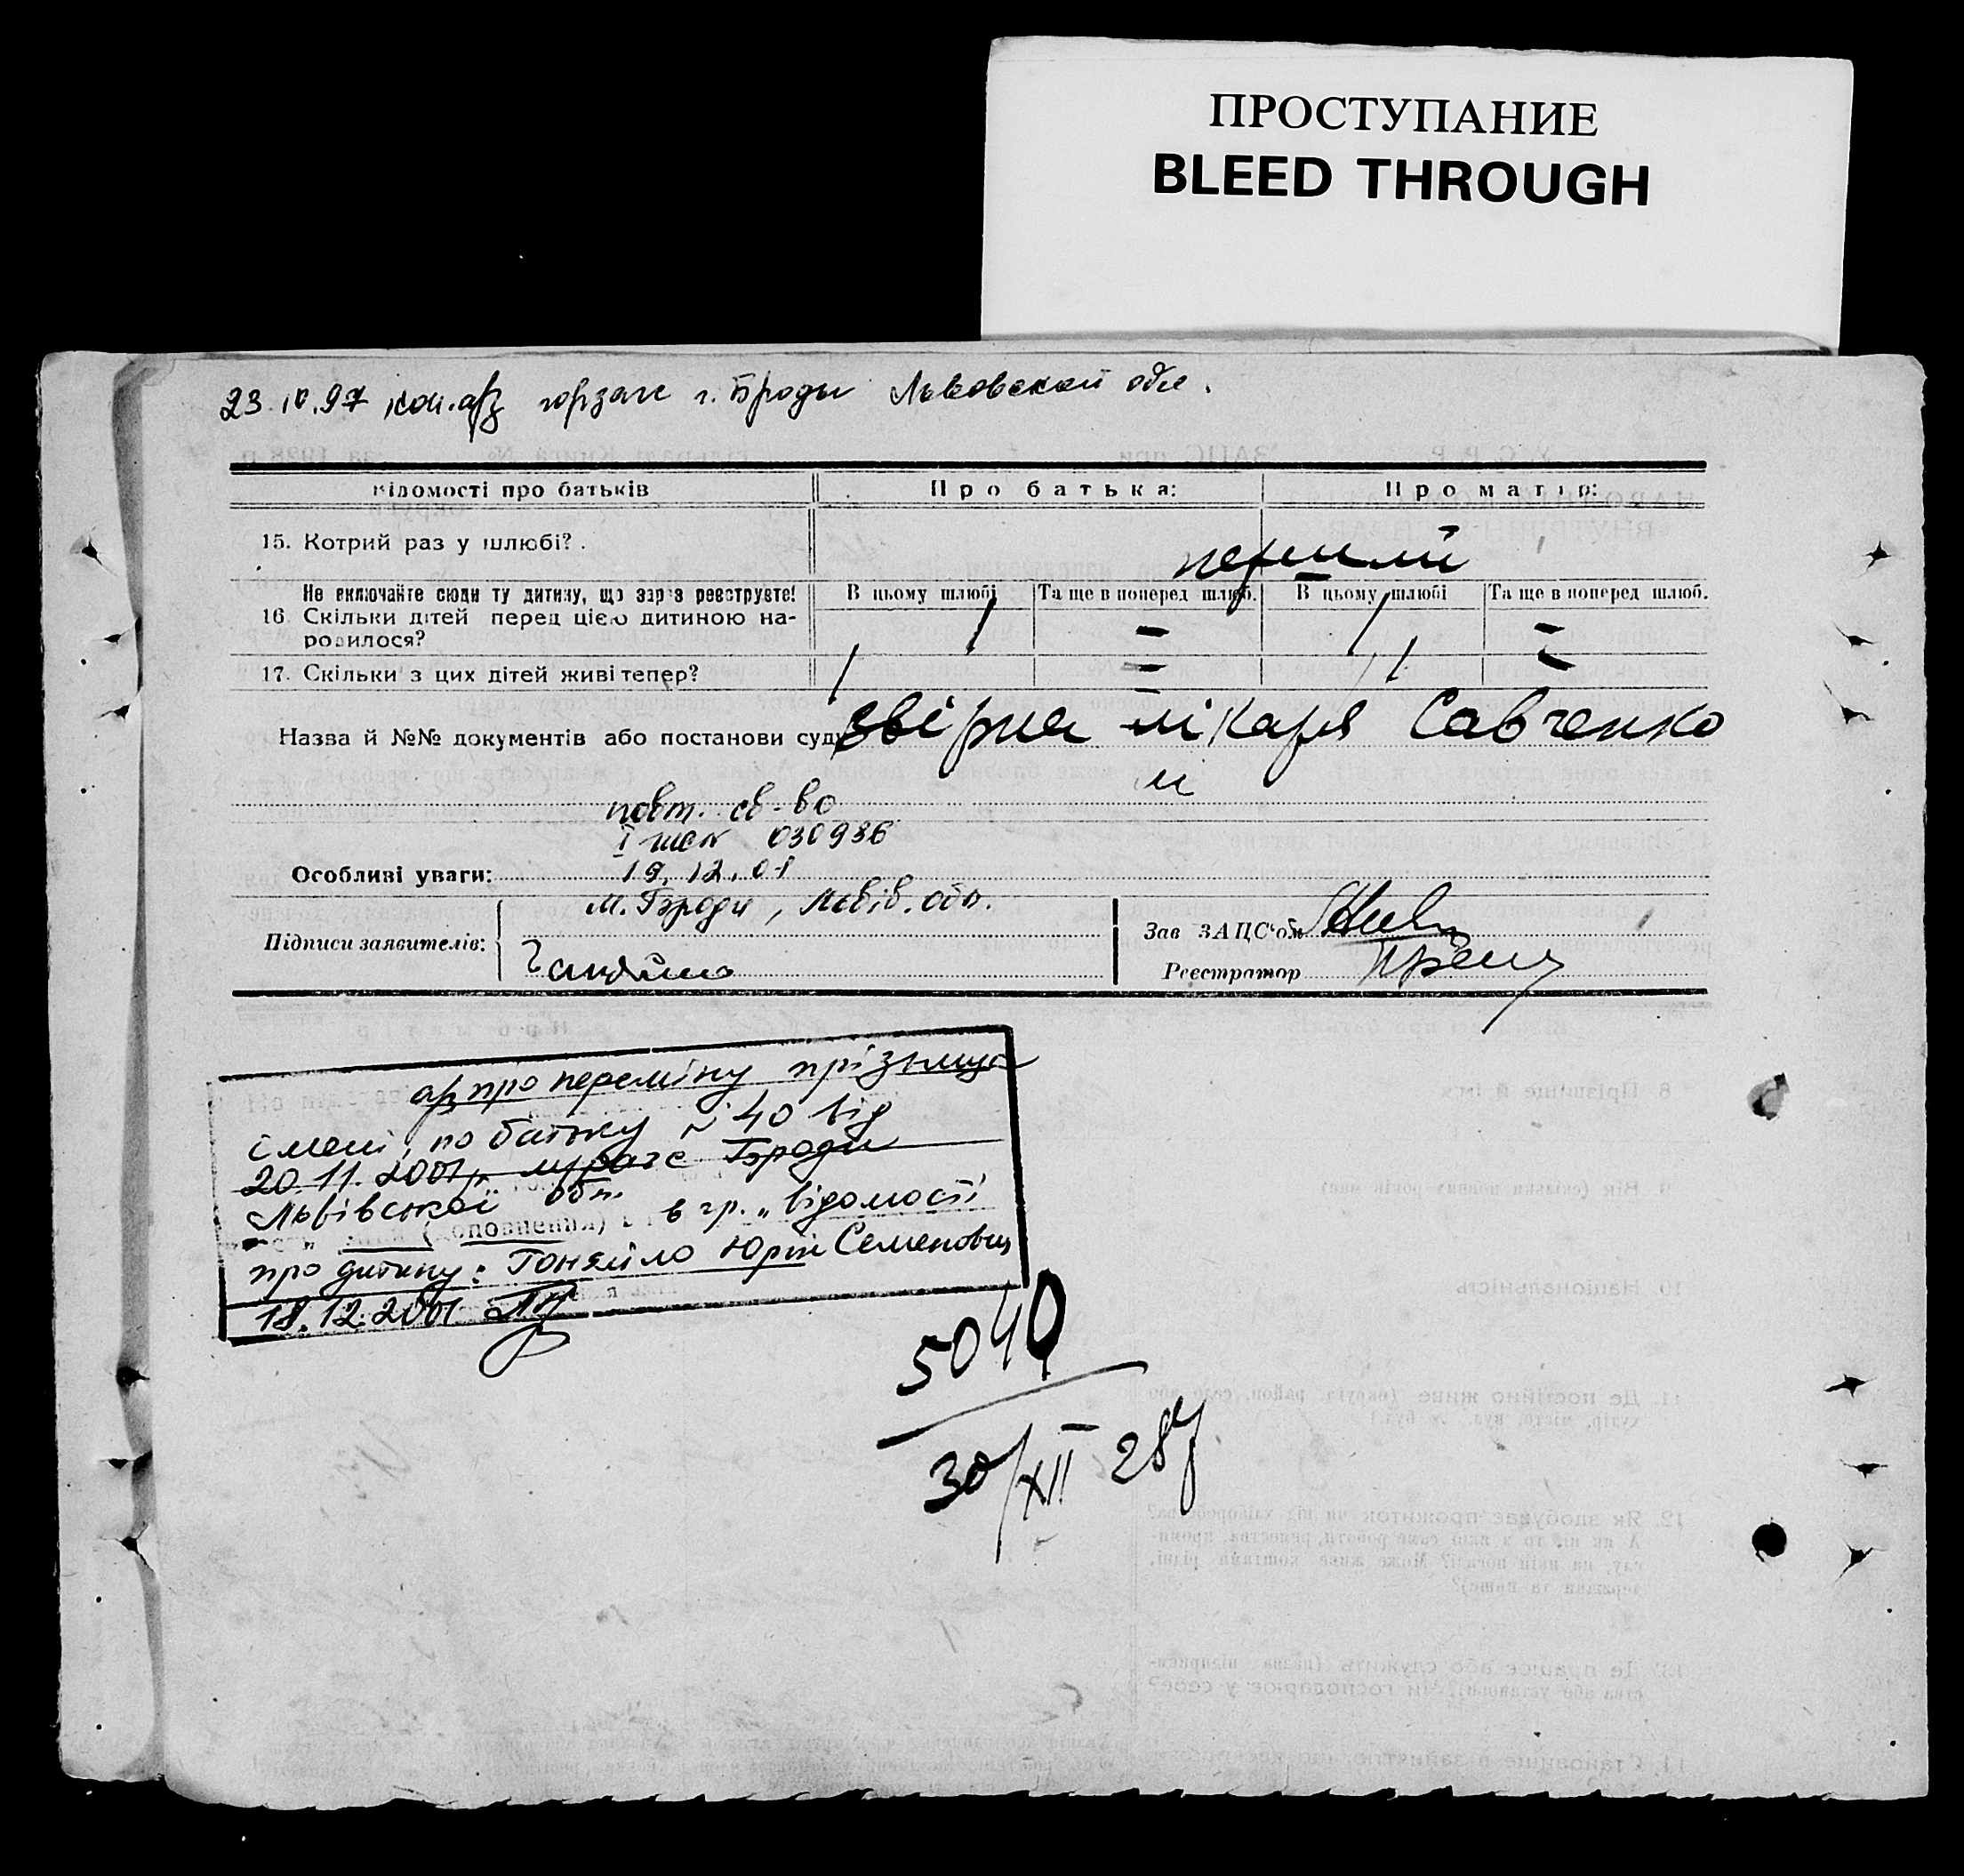 ПРОСТУПАНИЕ
BLEED THROUGH
23.IV.97 коп. а/з горзагс г. Броды Львовской обл.
Відомості про батьків
Про батька:
Про матір:
15. Котрий раз у шлюбі?
перший
Не включайте сюди ту дитину, що зараз реєструєте!
В цьому шлюбі
Та ще в поперед шлюб.
В цьому шлюбі
Та ще в поперед шлюб.
16 Скільки дітей перед цією дитиною на-
родилося?
1 – 1 –
17. Скільки з цих дітей живі тепер?
1 – 1 –
Назва й №№ документів або постанови суду
лікаря Савченко
повт. св-во
030936
Особливі уваги:
19.12.01
м. Броди, Львів. обл.
Підписи заявителів:
Зав ЗАЦС'ом
Реєстратор
а/з про переміну прізвища
імені, по батьку №40 від
20.11.2001р. Броди
Львівської обл. в гр. „відомості
про дитину: Гоняйло Юрій Семенович
18.12.2001
5040
30/XII 28р